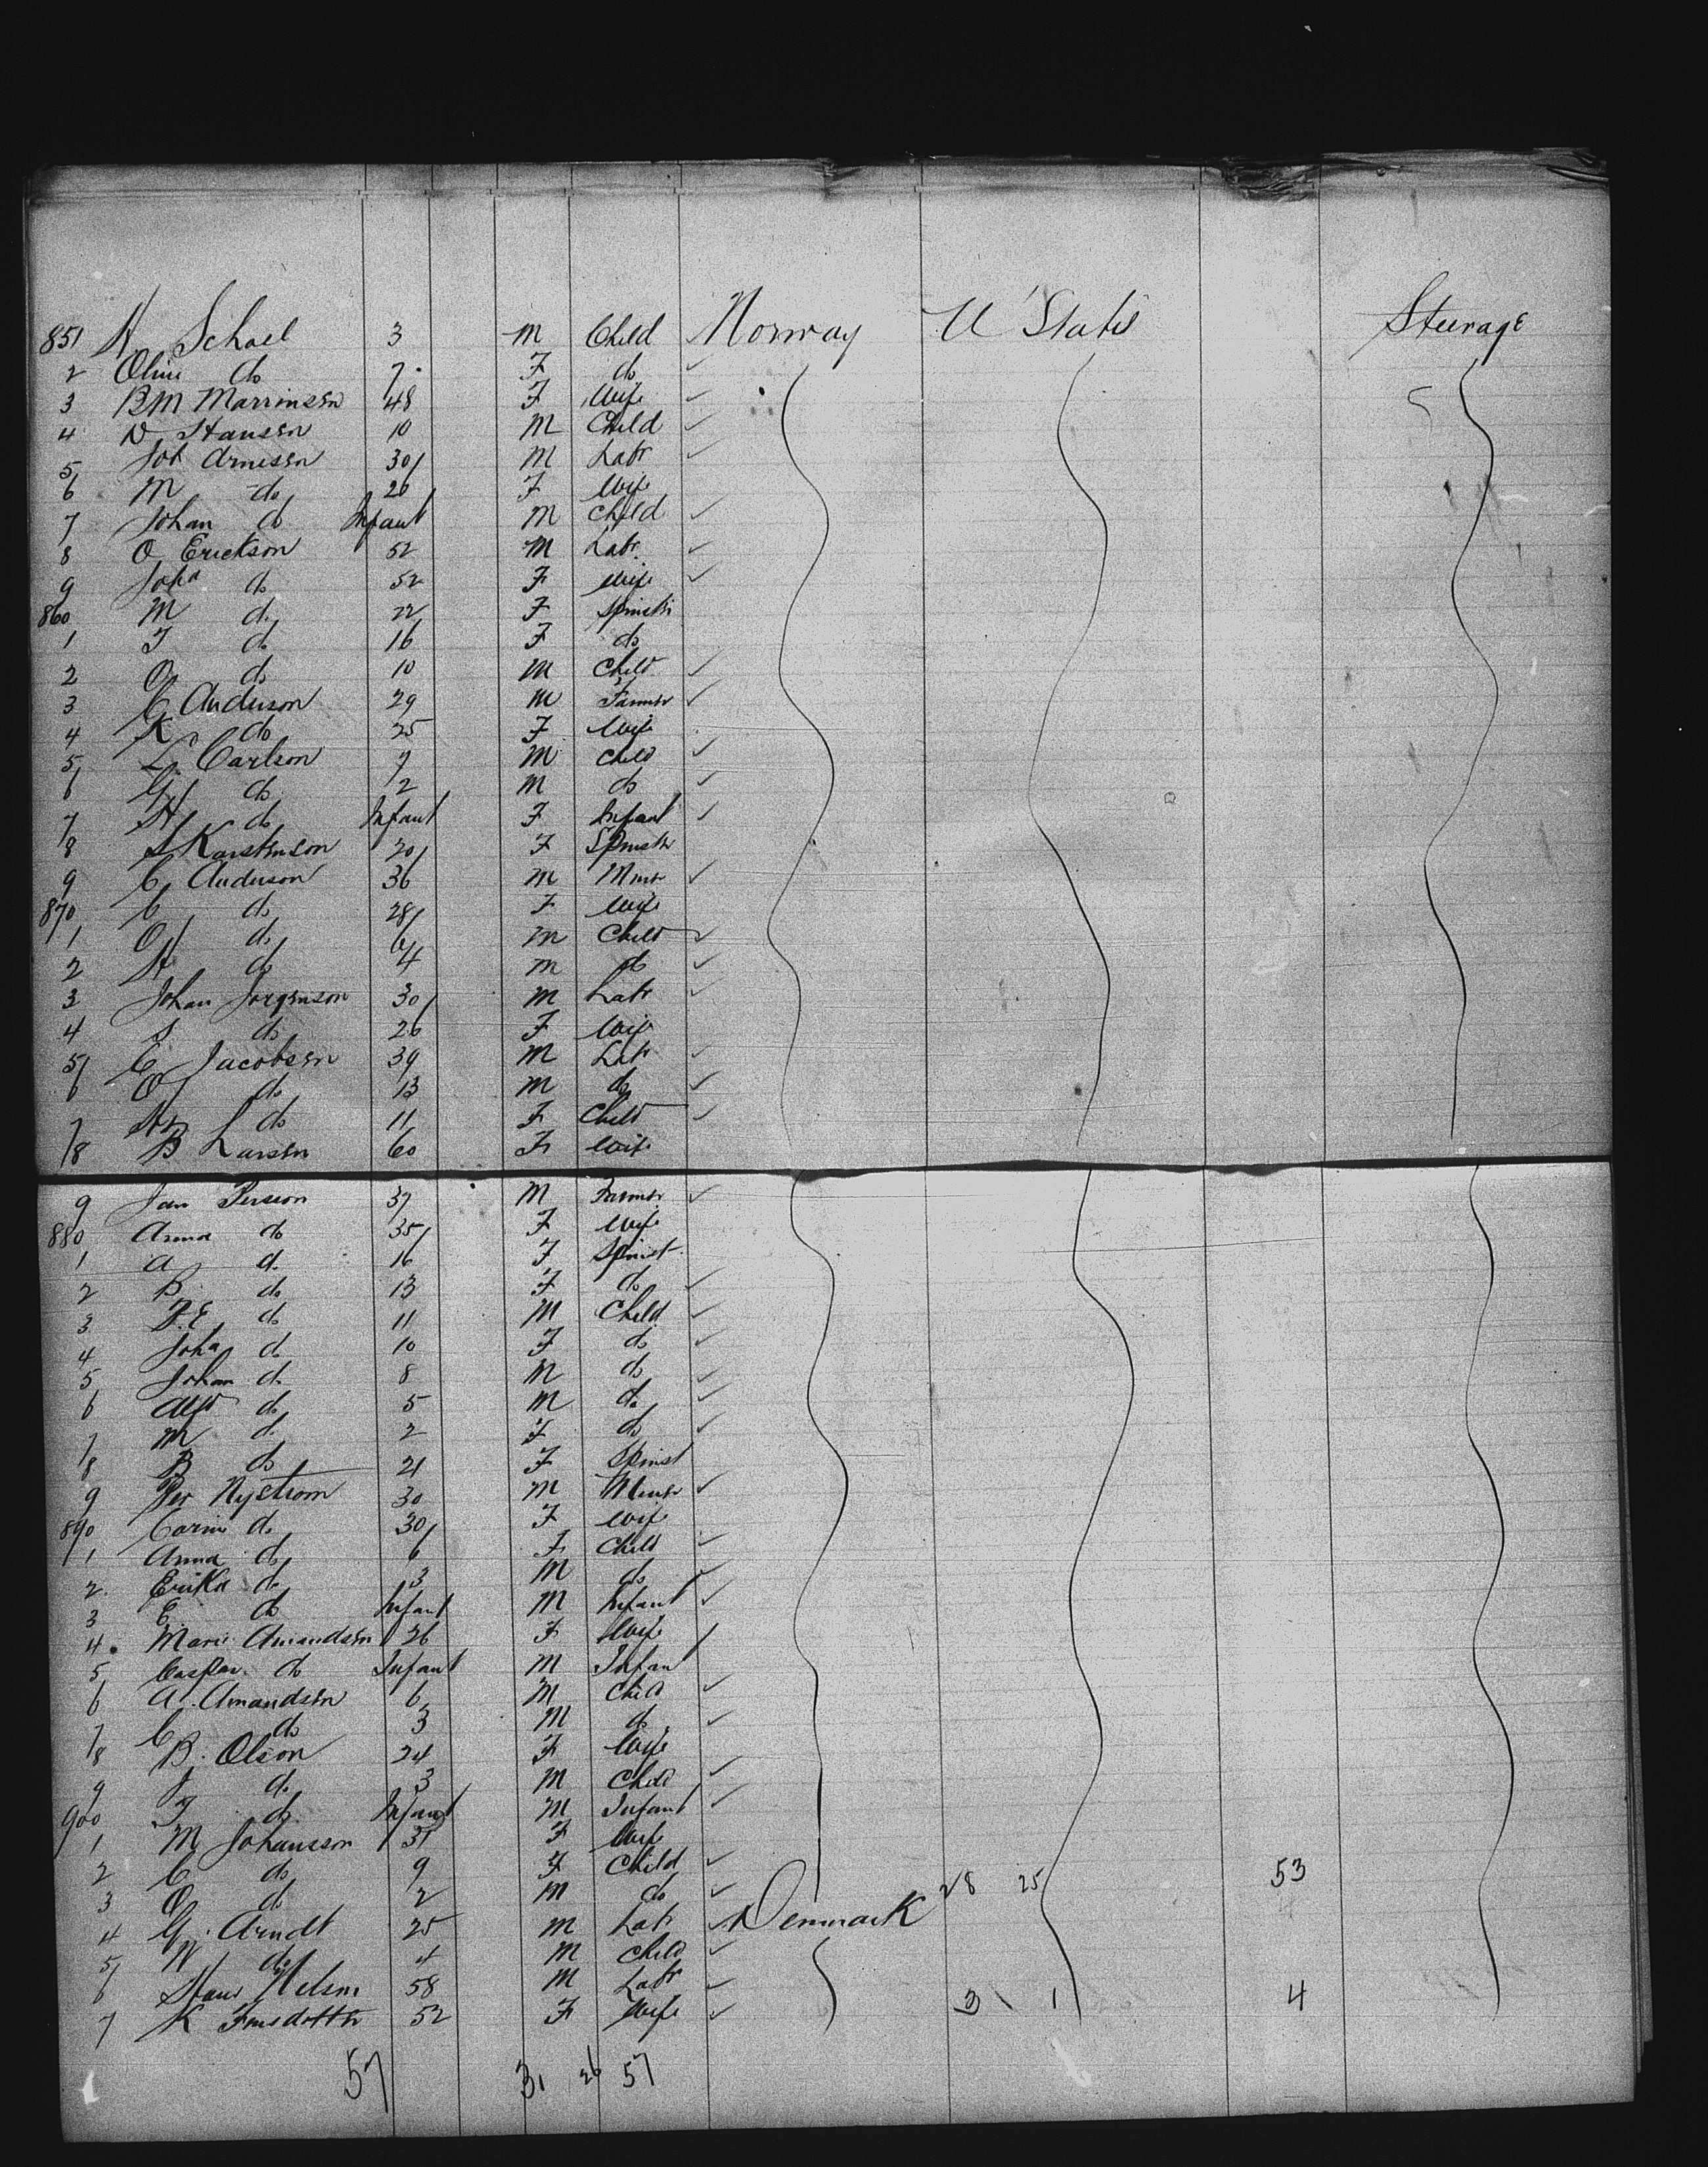 851 H Schael 3 M Child Norway U States Steerage
2 Oline do 7 F do
3 B M Marrinsen 48 F Wife
4 N Hansen 10 M Child
5 Joh Arnesen 30 M Labr
6 M do 26 F Wife
7 Johan do Infant M Child
8 O Erickson 52 M Labr.
9 Joha do 52 F Wife
860 M do 22 F Spinstr
1 J do 16 F do
2 O do 10 M Child
3 C Anderson 29 M Farmer
4 K do 25 F Wife
5 L. Carlson 7 M Child
6 G do 2 M do
7 H do Infant F Infant
8 S Karstenson 20 F Spinstr
9 C Anderson 36 M Miner
870 C do 28 F Wife
1 O do 6 M Child
2 H do 4 M do
3 Johan Jorgenson 30 M Labr
4 S do 26 F Wife
5 C Jacobsen 39 M Labr
6 O do 13 M do
7 do 11 F Child
8 B Larsen 60 F Wife
9 Jan Person 37 M Farmer
880 Anna do 35 F Wife
1 A do 16 F Spinst
2 B do 13 F do
3 F.E do 11 M Child
4 Joha do 10 F do
5 Johan do 8 M do
6 Alfd do 5 M do
7 M do 2 F do
8 B do 21 F Spinst
9 Per Nystrom 30 M Miner
890 Carin do 30 F Wife
1 Anna do 6 F Child
2 Erika do 3 M do
3 E do Infant M Infant
4 Marie Amandsen 26 F Wife
5 Caspar do Infant M Infant
6 A. Amandsen 6 M Child
7 C do 3 M do
8 B. Olson 24 F Wife
9 J do 3 M Child
900 F do Infant M Infant
1 M Johansson 31 F Wife
2 C do 9 F Child 28 25 53
3 O do 2 M do
4 G. Arndt 25 M Labr Denmark
5 W do 4 M Child
6 Hans Nelson 58 M Labr
7 K 52 F Wife 3 1 4
57 31 26 57